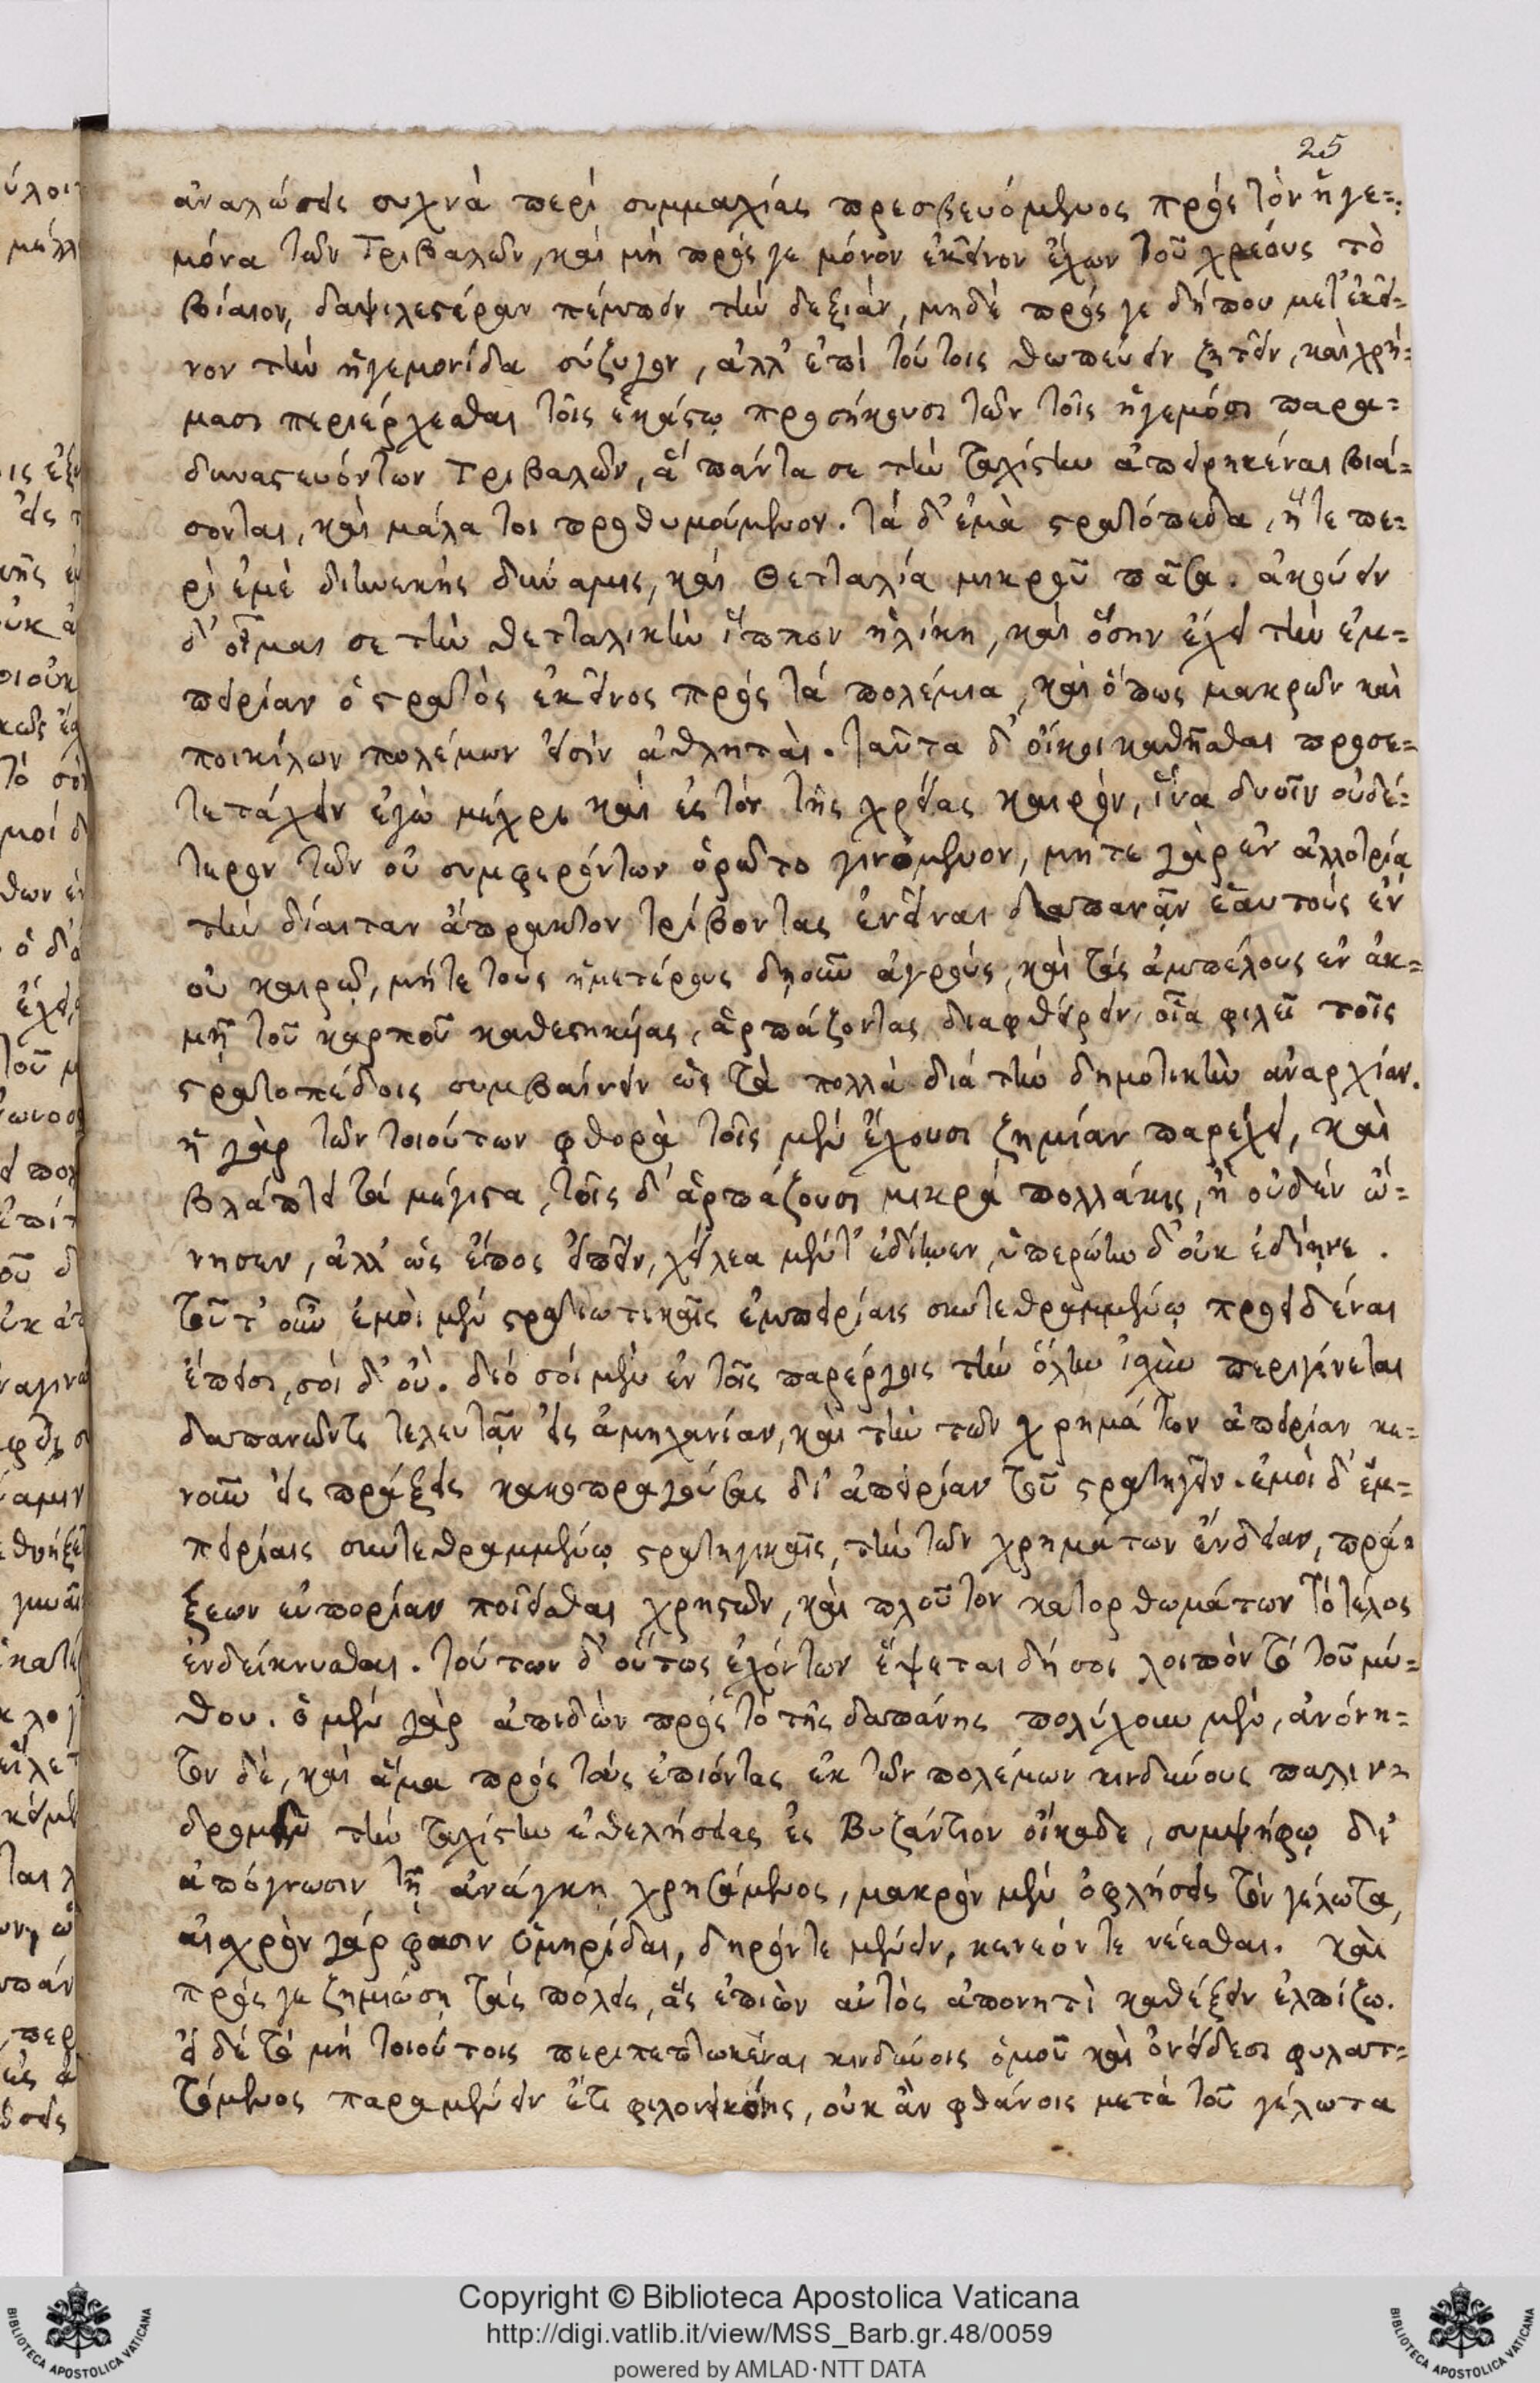 25
ἀναλώσεις συχνὰ περὶ συμμαχίας πρεσβευόμενος πρὸς τὸν ἡγε=
μόνα τῶν Τριβαλῶν, καὶ μὴ πρός γε μόνον ἐκεῖνον ἔχων τοῦ χρέους τὸ
βίαιον, δαψιλεστέραν πέμπειν τὴν δεξιὰν, μηδὲ πρός γε δήπου μετ' ἐκεῖ=
νον τὴν ἡγεμονίδα σύζυγον, ἀλλ' ἐπὶ τούτοις θωπεύειν ζητεῖν, καὶ χρή=
μασι περιέρχεσθαι τοῖς ἑκάστῳ προσήκουσι τῶν τοῖς ἡγεμόσι παρα=
δυναστευόντων Τριβαλῶν, ἃ πάντα σε τὴν ταχίστην ἀπειρηκέναι βιά=
σονται, καὶ μάλα τοι προθυμούμενον. τὰ δ' ἐμὰ στρατόπεδα, ἥ τε πε=
ρὶ ἐμὲ διηνεκὴς δύναμις, καὶ Θετταλία μικροῦ πᾶσα. ἀκούειν
δ' οἶμαι σε τὴν θετταλικὴν ἵππον ἡλίκη, καὶ ὅσην ἔχει τὴν ἐμ=
πειρίαν ὁ στρατὸς ἐκεῖνος πρὸς τὰ πολέμια, καὶ ὅπως μακρῶν καὶ
ποικίλων πολέμων εἰσὶν ἀθληταὶ. ταῦτα δ' οἴκοι καθῆσθαι προσε=
τετάχειν ἐγὼ μέχρι καὶ ἐς τὸν τῆς χρείας καιρὸν, ἵνα δυοῖν οὐδέ=
τερον τῶν οὐ συμφερόντων ὁρῷτο γινόμενον, μήτε γὰρ ἐν ἀλλοτρίᾳ
τὴν δίαιταν ἄπρακτον τρίβοντας ἐνεῖναι δαπανᾷν ἑαυτοὺς ἐν
οὐ καιρῷ, μήτε τοὺς ἡμετέρους δῃοῦν ἀγροὺς, καὶ τὰς ἀμπέλους ἐν ἀκ=
μῇ τοῦ καρποῦ καθεστηκυίας, ἁρπάζοντας διαφθείρειν, οἷα φιλεῖ τοῖς
στρατοπέδοις συμβαίνειν ὡς τὰ πολλὰ διὰ τὴν δημοτικὴν ἀναρχίαν.
ἡ γὰρ τῶν τοιούτων φθορὰ τοῖς μὲν ἔχουσι ζημίαν παρέχει, καὶ
βλάπτει τὰ μέγιστα, τοῖς δ' ἁρπάζουσι μικρὰ πολλάκις, ἢ οὐδὲν ὤ=
νησεν, ἀλλ' ὡς ἔπος εἰπεῖν, χείλεα μέν τ' ἐδίηνεν, ὑπερώην δ' οὐκ ἐδίηνε.
τοῦτ' οὖν ἐμοὶ μὲν στρατιωτικαῖς ἐμπειρίαις συντεθραμμένῳ προειδέναι
ἔπεισι, σοὶ δ' οὐ. διό σοι μὲν ἐν τοῖς παρέργοις τὴν ὅλην ἰσχὺν περιγίνεται
δαπανῶντι τελευτᾷν εἰς ἀμηχανίαν, καὶ τὴν τῶν χρημάτων ἀπορίαν κε=
νοῦν εἰς πράξεις κακοπραγούσας δι' ἀπειρίαν τοῦ στρατηγεῖν. ἐμοὶ δ' ἐμ=
πειρίαις συντεθραμμένῳ στρατηγικαῖς, τὴν τῶν χρημάτων ἔνδειαν, πρά=
ξεων εὐπορίαν ποιεῖσθαι χρηστῶν, καὶ πλοῦτον κατορθωμάτων τὸ τέλος
ἐνδείκνυσθαι. τούτων δ' οὕτως ἐχόντων ἕψεται δή σοι λοιπὸν τὸ τοῦ μύ=
θου. ὁ μὲν γὰρ ἀπιδὼν πρὸς τὸ τῆς δαπάνης πολύχουν μὲν, ἀνόνη=
τον δὲ, καὶ ἅμα πρὸς τοὺς ἐπιόντας ἐκ τῶν πολέμων κινδύνους παλιν=
δρομεῖν τὴν ταχίστην ἐθελήσεις ἐς Βυζάντιον οἴκαδε, συμψήφῳ δι'
ἀπόγνωσιν τῇ ἀνάγκῃ χρησάμενος, μακρὸν μὲν ὀφλήσεις τὸν γέλωτα,
αἰσχρὸν γάρ φασιν Ὁμηρίδαι, δηρόν τε μένειν, κενεόν τε νέεσθαι. καὶ
πρός γε ζημιώσῃ τὰς πόλεις, ἃς ἐπιὼν αὐτὸς ἀπονητὶ καθέξειν ἐλπίζω.
εἰ δὲ τὸ μὴ τοιούτοις περιπεπτωκέναι κινδύνοις ὁμοῦ καὶ ὀνείδεσι φυλατ=
τόμενος παραμένειν ἔτι φιλονεικοίης, οὐκ ἂν φθάνοις μετὰ τοῦ γέλωτα
Copyright © Biblioteca Apostolica Vaticana
http://digi.vatlib.it/view/MSS_Barb.gr.48/0059
powered by AMLAD·NTT DATA
BIBLIOTECA APOSTOLICA VATICANA
BIBLIOTECA APOSTOLICA VATICANA